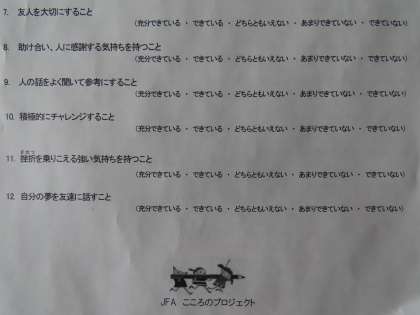 7. 友人を大切にすること
（充分できている ・ できている ・ どちらともいえない ・ あまりできていない ・ できていない）
8. 助け合い、人に感謝する気持ちを持つこと
（充分できている ・ できている ・ どちらともいえない ・ あまりできていない ・ できていない）
9. 人の話をよく聞いて参考にすること
（充分できている ・ できている ・ どちらともいえない ・ あまりできていない ・ できていない）
10. 積極的にチャレンジすること
（充分できている ・ できている ・ どちらともいえない ・ あまりできていない ・ できていない）
ざせつ
11. 挫折を乗りこえる強い気持ちを持つこと
（充分できている ・ できている ・ どちらともいえない ・ あまりできていない ・ できていない）
12. 自分の夢を友達に話すこと
（充分できている ・ できている ・ どちらともいえない ・ あまりできていない ・ できていない）
JFA こころのプロジェクト